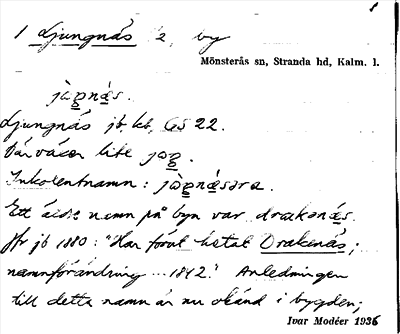 1
1 Ljungnäs 2, by
Mönsterås sn, Stranda hd, Kalm. l.
jùŋnäs.
Ljungnäs jb. kb, GS 22.
Där växer lite joŋ.
Inkolentnamn: jùŋnäsara.
Ett äldre namn på byn var drakanäs.
Hr jb 1880: "Har förut hetat Drakenäs;
namnförändring ... 1812." Anledningen
till detta namn är nu okänd i bygden;
Ivar Modéer 1936